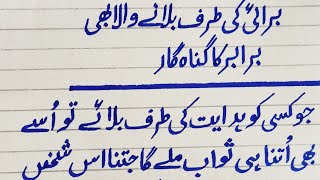 برائی کی طرف بلانے والا بھی
برابر کا گناہ گار
جو کسی کو ہدایت کی طرف بلائے تو اُسے
بھی اُتنا ہی ثواب ملے گا جتنا اس شخص